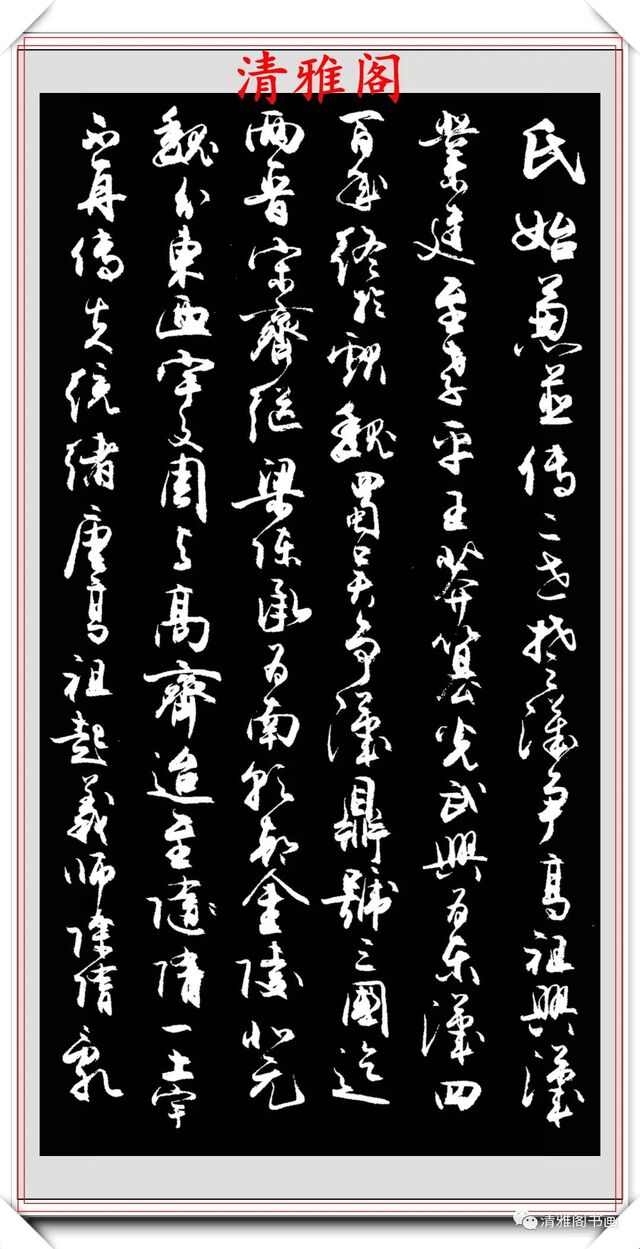 清雅阁
氏始兼並傳二世楚漢爭高祖興漢
業建至孝平王莽篡光武興為東漢四
百年終於獻魏蜀吳爭漢鼎號三國迄
兩晉宋齊繼梁陳承為南朝都金陵北元
魏分東西宇文周與高齊迨至隋隋一土宇
不再傳失統緒唐高祖起義師除隋亂
清雅阁书画